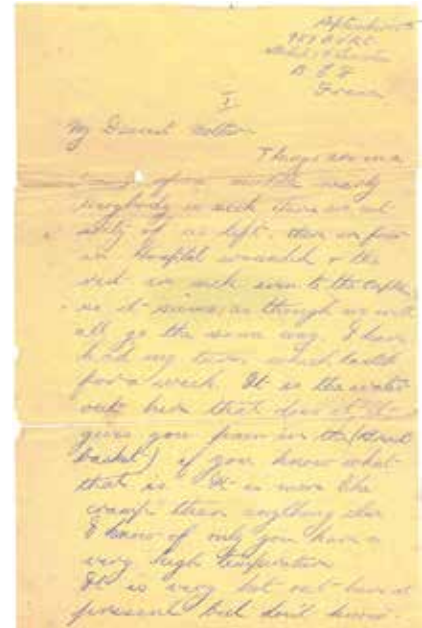 September 5
B E F
France
I
My Dearest Mother
Things are in a
nearly
everybody is sick there are not
of us left. there are four
in Hospital wounded & the
rest are sick even to the Captain
so it seems as though we will
all go the same way. I have
had my turn which lasted
for a week. It is the water
out here that does it it
gives you pain in the (
basket) if you know what
that is. It is more like
cramp than anything else
I know of only you have a
very high temperature
It is very hot out here at
present but don't know